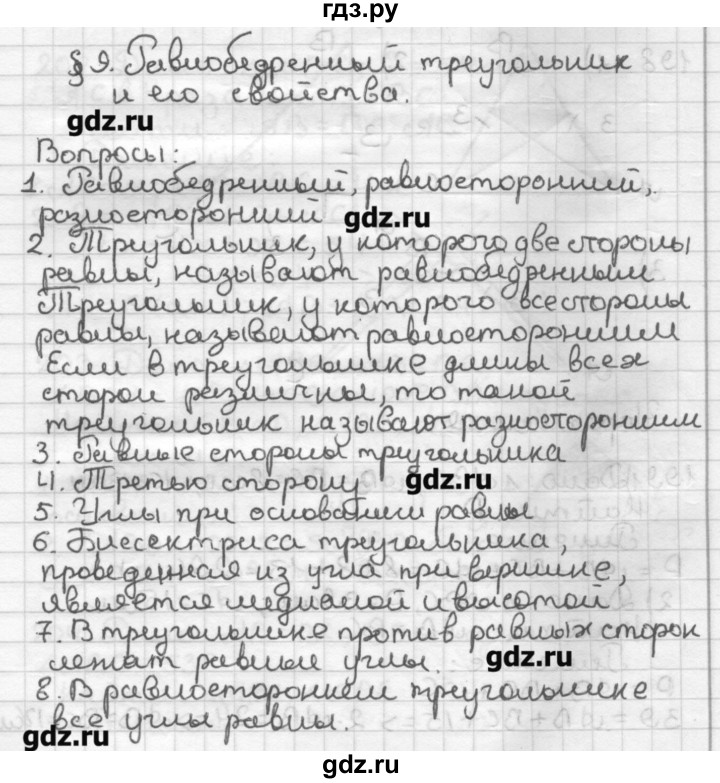 гдз.ру
§ 9. Равнобедренный треугольник
и его свойства.
gdz.ru
Вопросы:
1. Равнобедренный, равносторонний,
разносторонний gdz.ru
2. Треугольник, у которого две стороны
равны, называют равнобедренным
Треугольник, у которого все стороны
равны, называют равносторонним
Если в треугольнике длины всех
сторон различны, то такой
треугольник называют разносторонним
3. Равные стороны треугольника
4. Третью сторону gdz.ru
5. Углы при основании равны
6. Биссектриса треугольника,
проведенная из угла при вершине,
является медианой и высотой
7. В треугольнике против равных сторон
лежат равные углы. gdz.ru
8. В равностороннем треугольнике
все углы равны.
gdz.ru
gdz.ru